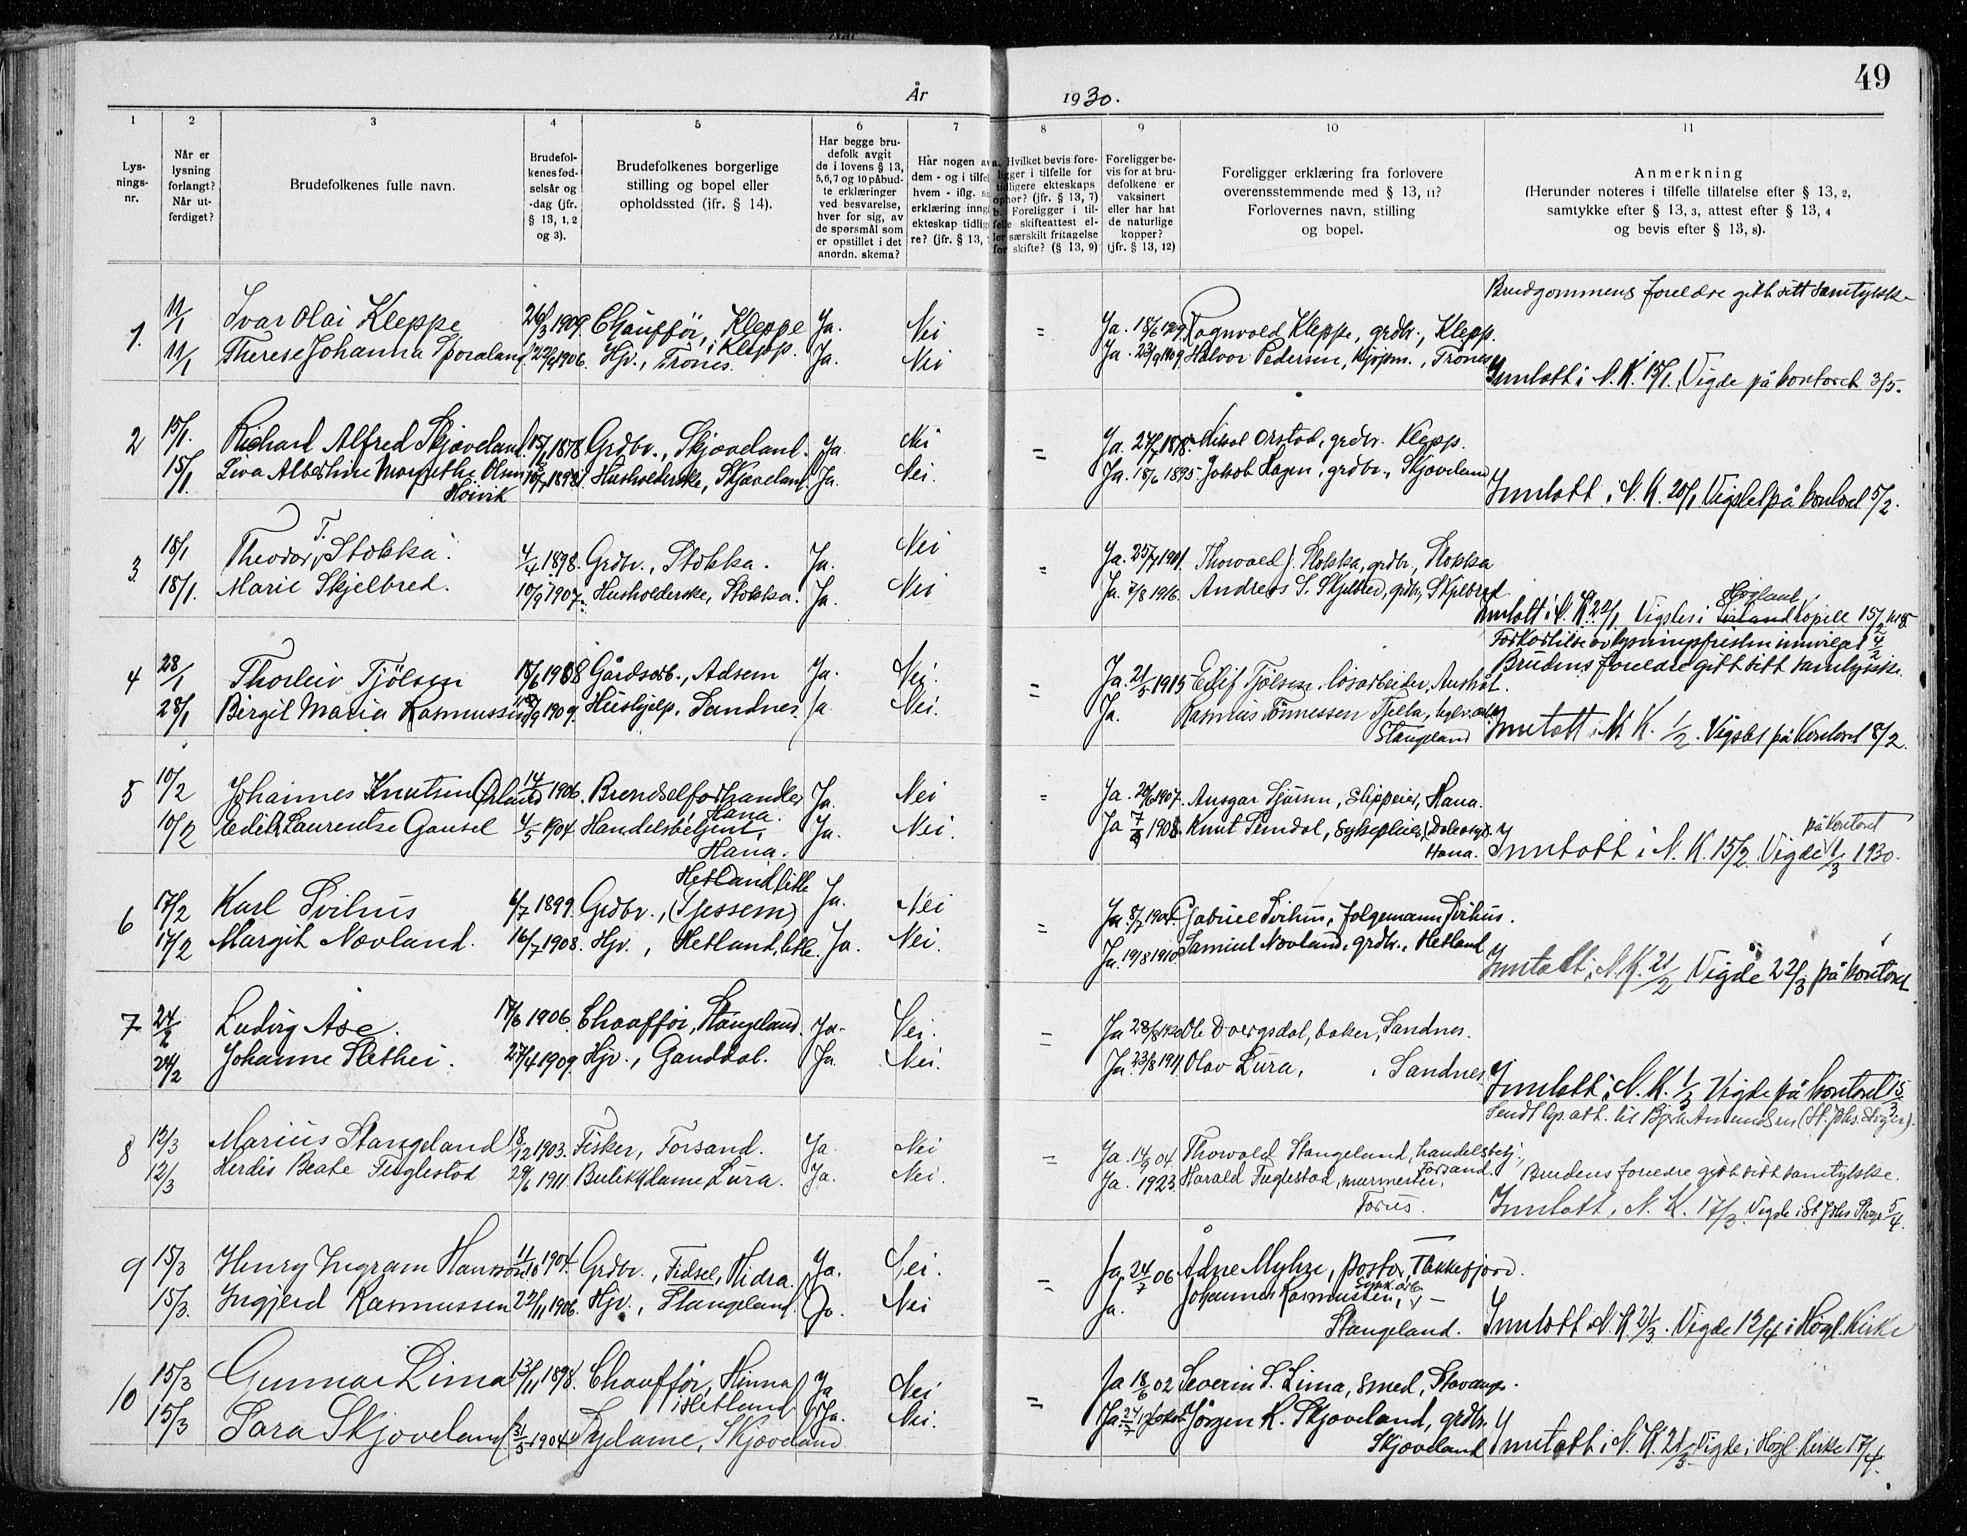 49
År 1930.
1 2 3 4 5 6 7 8 9 10 11
Lys-
nings-
nr.
Når er
lysning
forlangt?
Når ut-
ferdiget?
Brudefolkenes fulle navn.
Brudefol-
kenes fød-
selsår og
-dag (jfr.
§ 13, 1, 2
og 3).
Brudefolkenes borgerlige
stilling og bopel eller
opholdssted (ifr. § 14).
Har begge bru-
defolk avgit
de i lovens § 13,
5,6,7 og 10 påbud-
te erklæringer
ved besvarelse,
hver for sig, av
de spørsmål som
er opstillet i det
anordn. skema?
Har nogen av
dem - og i tilfel
hvem - iflg.
erklæring inng
ekteskap tidlig
re? (jfr. § 13,
Hvilket bevis fore-
ligger i tilfelle for
tidligere ekteskaps
ophør? (jfr. § 13, 7)
Foreligger i til-
felle skifteattest el-
ler særskilt fritagelse
for skifte? (§ 13, 9)
Foreligger be-
vis for at bru-
defolkene er
vaksinert
eller har hat
de naturlige
kopper?
(jfr. § 13, 12)
Foreligger erklæring fra forlovere
overensstemmende med § 13, 11?
Forlovernes navn, stilling
og bopel.
Anmerkning
(Herunder noteres i tilfelle tillatelse efter § 13, 2,
samtykke efter § 13, 3, attest efter § 13, 4
og bevis efter § 13, 8).
Brudgommens foreldre gitt sitt samtykke
1. 11/1 Ivar Olai Kleppe 26/3 1909 Chauffør, Kleppe i Klepp. Ja. Nei = Ja. 18/6 1909 Ragnvald Kleppe, grdbr., Klepp.
11/1 Therese Johanna Sporaland 22/9 1906. Hjv., Trones. Ja. Nei Ja. 23/9 1909 Halvor Pedersen, kjøpm., Trones
Inntatt i N. K. 15/1. Vigde på kontoret 3/5.
2 15/1. Richard Alfred Skjæveland 15/1 1878 Grdbr., Skjæveland. Ja. Nei = Ja. 27/7 1878. Mikal Orstad, grdbr. Klepp.
15/1. Leva Albertine Margrethe Olsen Høivik Husholderske, Skjæveland. Ja. Nei. Ja. 18/6 1895 Jakob Hagen, grdbr., Skjæveland
Inntatt i N. K. 20/1 Vigslet på kontoret 5/2.
3. 18/1 Theodor T. Stokka. 4/4 1898. Grdbr., Stokka. Ja. Nei = Ja. 25/7 1901. Thorvald J. Stokka, grdbr., Stokka
18/1. Marie Skjelbred. 10/9 1907. Husholderske, Stokka. Ja. Nei Ja. 7/8 1916. Andreas S. Skjelbred, grdbr, Skjelbred
Inntatt i N. K. 22/1 Vigsles i Høiland kapell 15/2
Forkortelse av lysningsfristen innvilget 4/2
Brudens foreldre gitt sitt samtykke.
4 28/1 Thorleiv Tjølsen 18/6 1908 Gårdsarb., Adsem Ja. Nei. = Ja. 21/5 1915 Eilif Tjølsen, løsarbeider, Austråt.
28/1 Birgit Maria Rasmussen 1909. Hushjelp, Sandnes. Ja Nei. Ja. Rasmus Tønnessen Tjella,
Stangeland
Inntatt i N. K. 1/2. Vigslet på Kontoret 8/2.
5 10/2 Johannes Knutsen Ørland 14/ 1906. Brenselforhandler Hana. Ja. Nei = Ja. 20/6 1907. Ansgar Sjursen, Slippeier, Hana.
10/2 Edith Laurentse Gausel 4/5 1904 Handelsbetjent, Hana. Ja. Nei. Ja 7/ 1908 Knut Timdal, Sykepleier, Hana.
Inntatt i N. K. 15/2. Vigde på kontoret 1/3 1930.
6 17/2 Karl Svihus 6/7 1899 Grdbr., Hetland lille (Tjessem) Ja. Nei = Ja. 8/7 1904 Gabriel Svihus, folgemann Svihus.
17/2 Margit Novland. 16/7 1908. Hjv., Hetland, lille. Ja. Nei. Ja. 19/8 1910 Samuel Novland, grdbr., Hetland
Inntatt i N. K. 21/2 Vigde 22/3 på kontoret
7 24/2 Ludvig Ase. 17/6 1906. Chauffør, Stangeland. Ja. Nei. = Ja 28/8 1920 Ole Dvergsdal, baker, Sandnes.
24/2 Johanne Slethei. 27/4 1909. Hjv., Ganddal. Ja. Nei. Ja. 23/8 1911. Olav Lura, Sandnes
Inntatt i N. K. 1/3 Vigde på kontoret 15/3
8 12/3 Marius Stangeland 18/12 1903. Fisker, Forsand. Ja. Nei = Ja. 14/9 04 Thorvald Stangeland, handelsbetj., Forsand.
12/3 Herdis Beate Fuglestad 29/6 1911. Butikkdame Lura. Ja. Nei. Ja. 1923. Harald Fuglestad, murmester, Forus.
Brudens foreldre gitt sitt samtykke.
Inntatt i N. K. 17/3. Vigde i St. Johs. 5/4.
9 15/3 Henry Ingram Hansson 11/10 1904. Grdbr., Fidsel, Hidra. Ja. Nei. = Ja 24/7 06 Ådne Myhre, pastor, Flekkefjord.
15/3. Ingjerd Rasmussen 22/11 1906. Hjv., Stangeland. Ja. Nei Ja. Johannes Rasmussen,
Stangeland.
Inntatt i N. K. 21/3. Vigde 12/4 i Høgl. Kirke
10 15/3 Gunnar Lima 13/11 1898. Chauffør, Hinna Hetland Ja Nei = Ja 18/6 02 Severin S. Lima, smed, Stavanger.
15/3 Sara Skjæveland 31/5 1904 Sydame, Skjæveland Ja. Nei. Ja. Jørgen K. Skjæveland, grdbr.
Skjæveland
Inntatt i N. K. 21/3 Vigde i Høgl. Kirke 17/4.